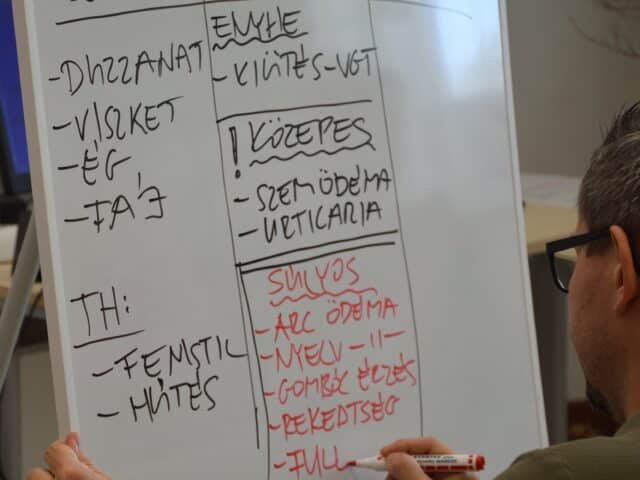 - DUZZANAT
- VISZKET
- ÉG
- FÁJ
TH:
- FENISTIL
- HŰTÉS
ENYHE
- KIÜTÉS-VGT
! KÖZEPES
- SZEMÖDÉMA
- URTICARIA
SÚLYOS
- ARC ÖDÉMA
- NYELV -11-
- GOMBÓC ÉRZÉS
- REKEDTSÉG
- FULL